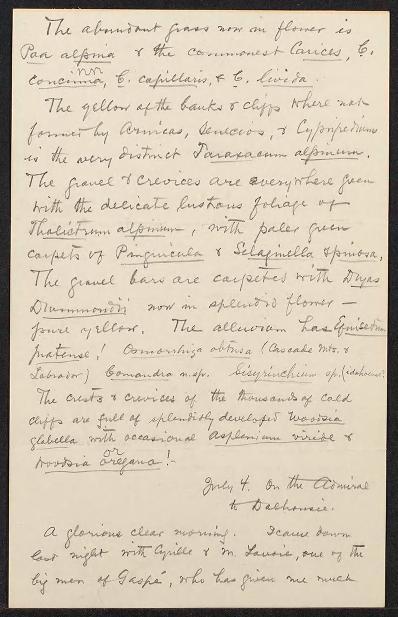 The abundant grass now in flower is
Poa alpina & the commonest Carices, C.
concinna, C. capillaris, & C. livida.
The yellow of the banks & cliffs where not
formed by Arnicas, Senecios, & Cypripediums
is the very distinct Taraxacum alpinum.
The gravel & crevices are everywhere green
with the delicate lustrous foliage of
Thalictrum alpinum, with paler green
carpets of Pinguicula & Selaginella spinosa.
The gravel bars are carpeted with Dryas
Drummondii now in splendid flower —
pure yellow. The alluvium has Equisetum
pratense! Osmorrhiza obtusa (Cascade Mts. &
Labrador) Comandra n.sp. Sisyrinchium sp.
The crests & crevices of the thousands of cold
cliffs are full of splendidly developed Woodsia
glabella with occasional Asplenium viride &
Woodsia oregana!
or
July 4. On the Admiral
to Dalhousie.
A glorious clear morning. I came down
last night with Cyrille & M. Lavoie, one of the
big men of Gaspé, who has given me much